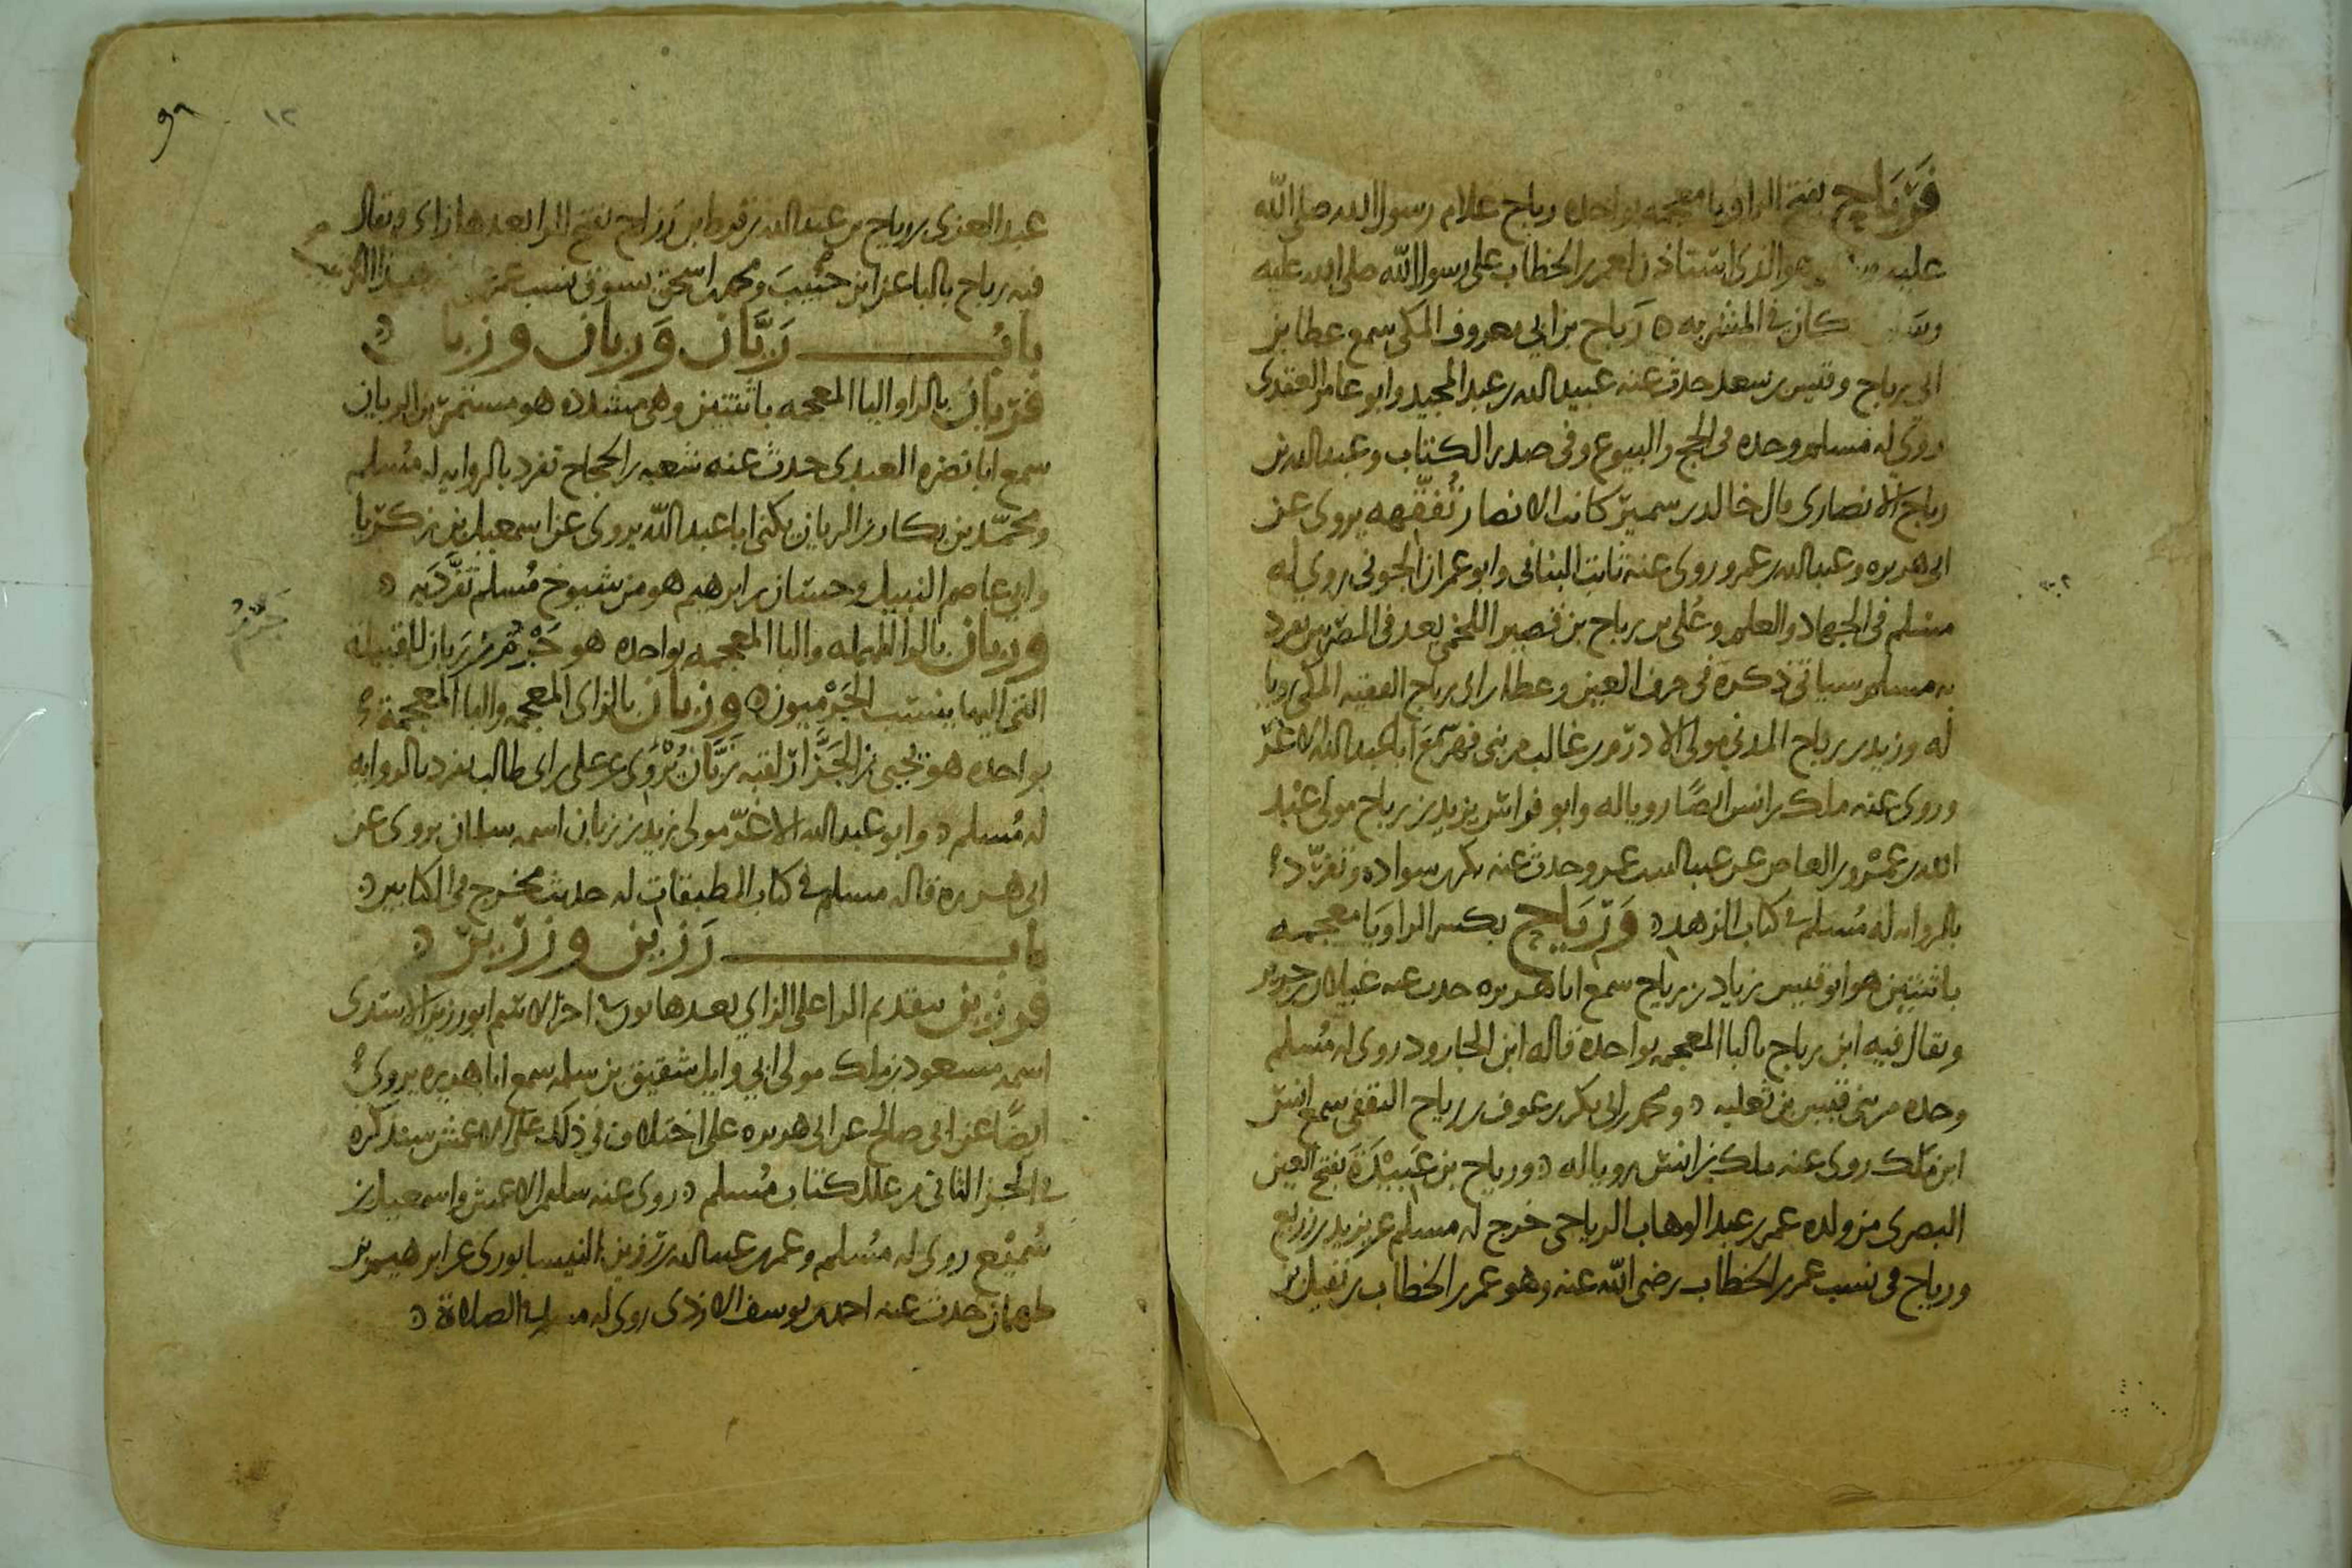 فَرَبَاح بفتح الرا وبا معجمه بواحده رباح غلام رسول الله صلى الله
عليه هو الذى استاذن لعمر بن الخطاب على رسول الله صلى الله عليه
كان فى المشربه ه رَباح بن ابى معروف المكى سمع عطا بن
ابى رباح وقيس بن سعد حدث عنه عبيد الله بن عبد المجيد وابو عامر العقدى
روى له مسلم وحده فى الحج والبيوع وفى صدر الكتاب وعبد الله بن
رباح الانصارى قال خالد بن سمير كانت الانصار تُفَقّهه يروى عن
ابى هريره وعبد الله بن عمرو روى عنه ثابت البنانى وابو عمران الجونى روى له
مسلم فى الجهاد والعلم وعُلى بن رباح بن قصير اللخمى يعد فى المصريين تفرد
به مسلم سياتى ذكره فى حرف العين وعطا بن ابى رباح الفقيه المكى رويا
له وزيد بن رباح المدنى مولى الادرم بن غالب من بنى فهر سمع ابا عبد الله الاغر
وروى عنه ملك بن انس ايضًا رويا له وابو فراس يزيد بن رباح مولى عبد
الله بن عمرو بن العاص عن عبد الله بن عمرو حدث عنه بكر بن سواده وتفرّد
بالروايه له مُسلم فى كتاب الزهد ه وَرِيَاح بكسر الرا ويا معجمه
باثنتين هو ابو قيس زياد بن رياح سمع ابا هريره حدث عنه غيلان بن جرير
ويقال فيه ابن رباح بالبا المعجمه بواحدة قاله ابن الجارود روى له مُسلم
وحده من بنى قيس بن ثعلبه ه ومحمد بن ابى بكر بن عوف بن رياح الثقفى سمع انس
ابن ملك روى عنه ملك بن انس رويا له ه ورياح بن عَبيْدَةَ بفتح العين
البصرى من ولده عمر بن عبد الوهاب الرياحى خرج له مسلم عن يزيد بن زريع
ورياح فى نسب عمر بن الخطاب رضى الله عنه وهو عمر بن الخطاب بن نفيل بن
١٢
عبد العزى بن رياح بن عبد الله بن قرط ابن رَزاح بفتح الرا بعدها زاى ويقال
فيه رباح بالبا عن ابن حَبيبَ ومحمد بن اسحق يسوق نسب عمر
بابُ رَيَّان وَرَبان وزبا ه
فرَيان بالرا واليا المعجمه باثنتين وهى مشدده هو مستمر بن الريان
سمع ابا نضره العبدى حدث عنه شعبه بن الحجاج تفرد بالروايه له مُسلم
ومحمّد بن بكار بن الريان يكنى ابا عبد الله يروى عن اسمعيل بن زكريا
وابى عاصم النبيل وحسان بن ابرهيم هو من شيوخ مُسلم تفَرَّد به ه
وربان بالرا المهمله والبا المعجمه بواحده هو جَرْم بن رَبان القبيلة
التى اليها ينسب الجَرْميون ه وزبان بالزاى المعجمه والبا المعجمة
بواحده هو يحيى بن الجَزَّار لقبه زَبَّان يُرْوَى عن على بن ابى طالب تفرد بالروايه
له مُسلم ه وابو عبد الله الاغرّ مولى زيد بن زبان اسمه سلمان يروى عن
ابى هريره قاله مسلم فى كتاب الطبقات له حديثه مخرج فى الكتابين ه
باب رَزين وزَرِير ه
فرزين بتقديم الرا على الزاي بعدها نون فى اخر الاسم ابو رزين الاسدى
اسمه مسعود بن ملك مولى ابي وايل شقيق بن سلمه سمع ابا هريره يروي
ايضًا عن ابى صالح عن ابى هريره على اختلاف فى ذلك على الاعمش سنذكره
فى الجز الثانى من علل كتاب مُسلم ه روى عنه سليمن الاعمش واسمعيل بن
سُمَيْع روى له مُسلم وعمر بن عبد الله بن رَزين النيسابورى عن ابرهيم بن
طهمان حدث عنه احمد بن يوسف الازدى روى له مسلم فى الصلاة ه